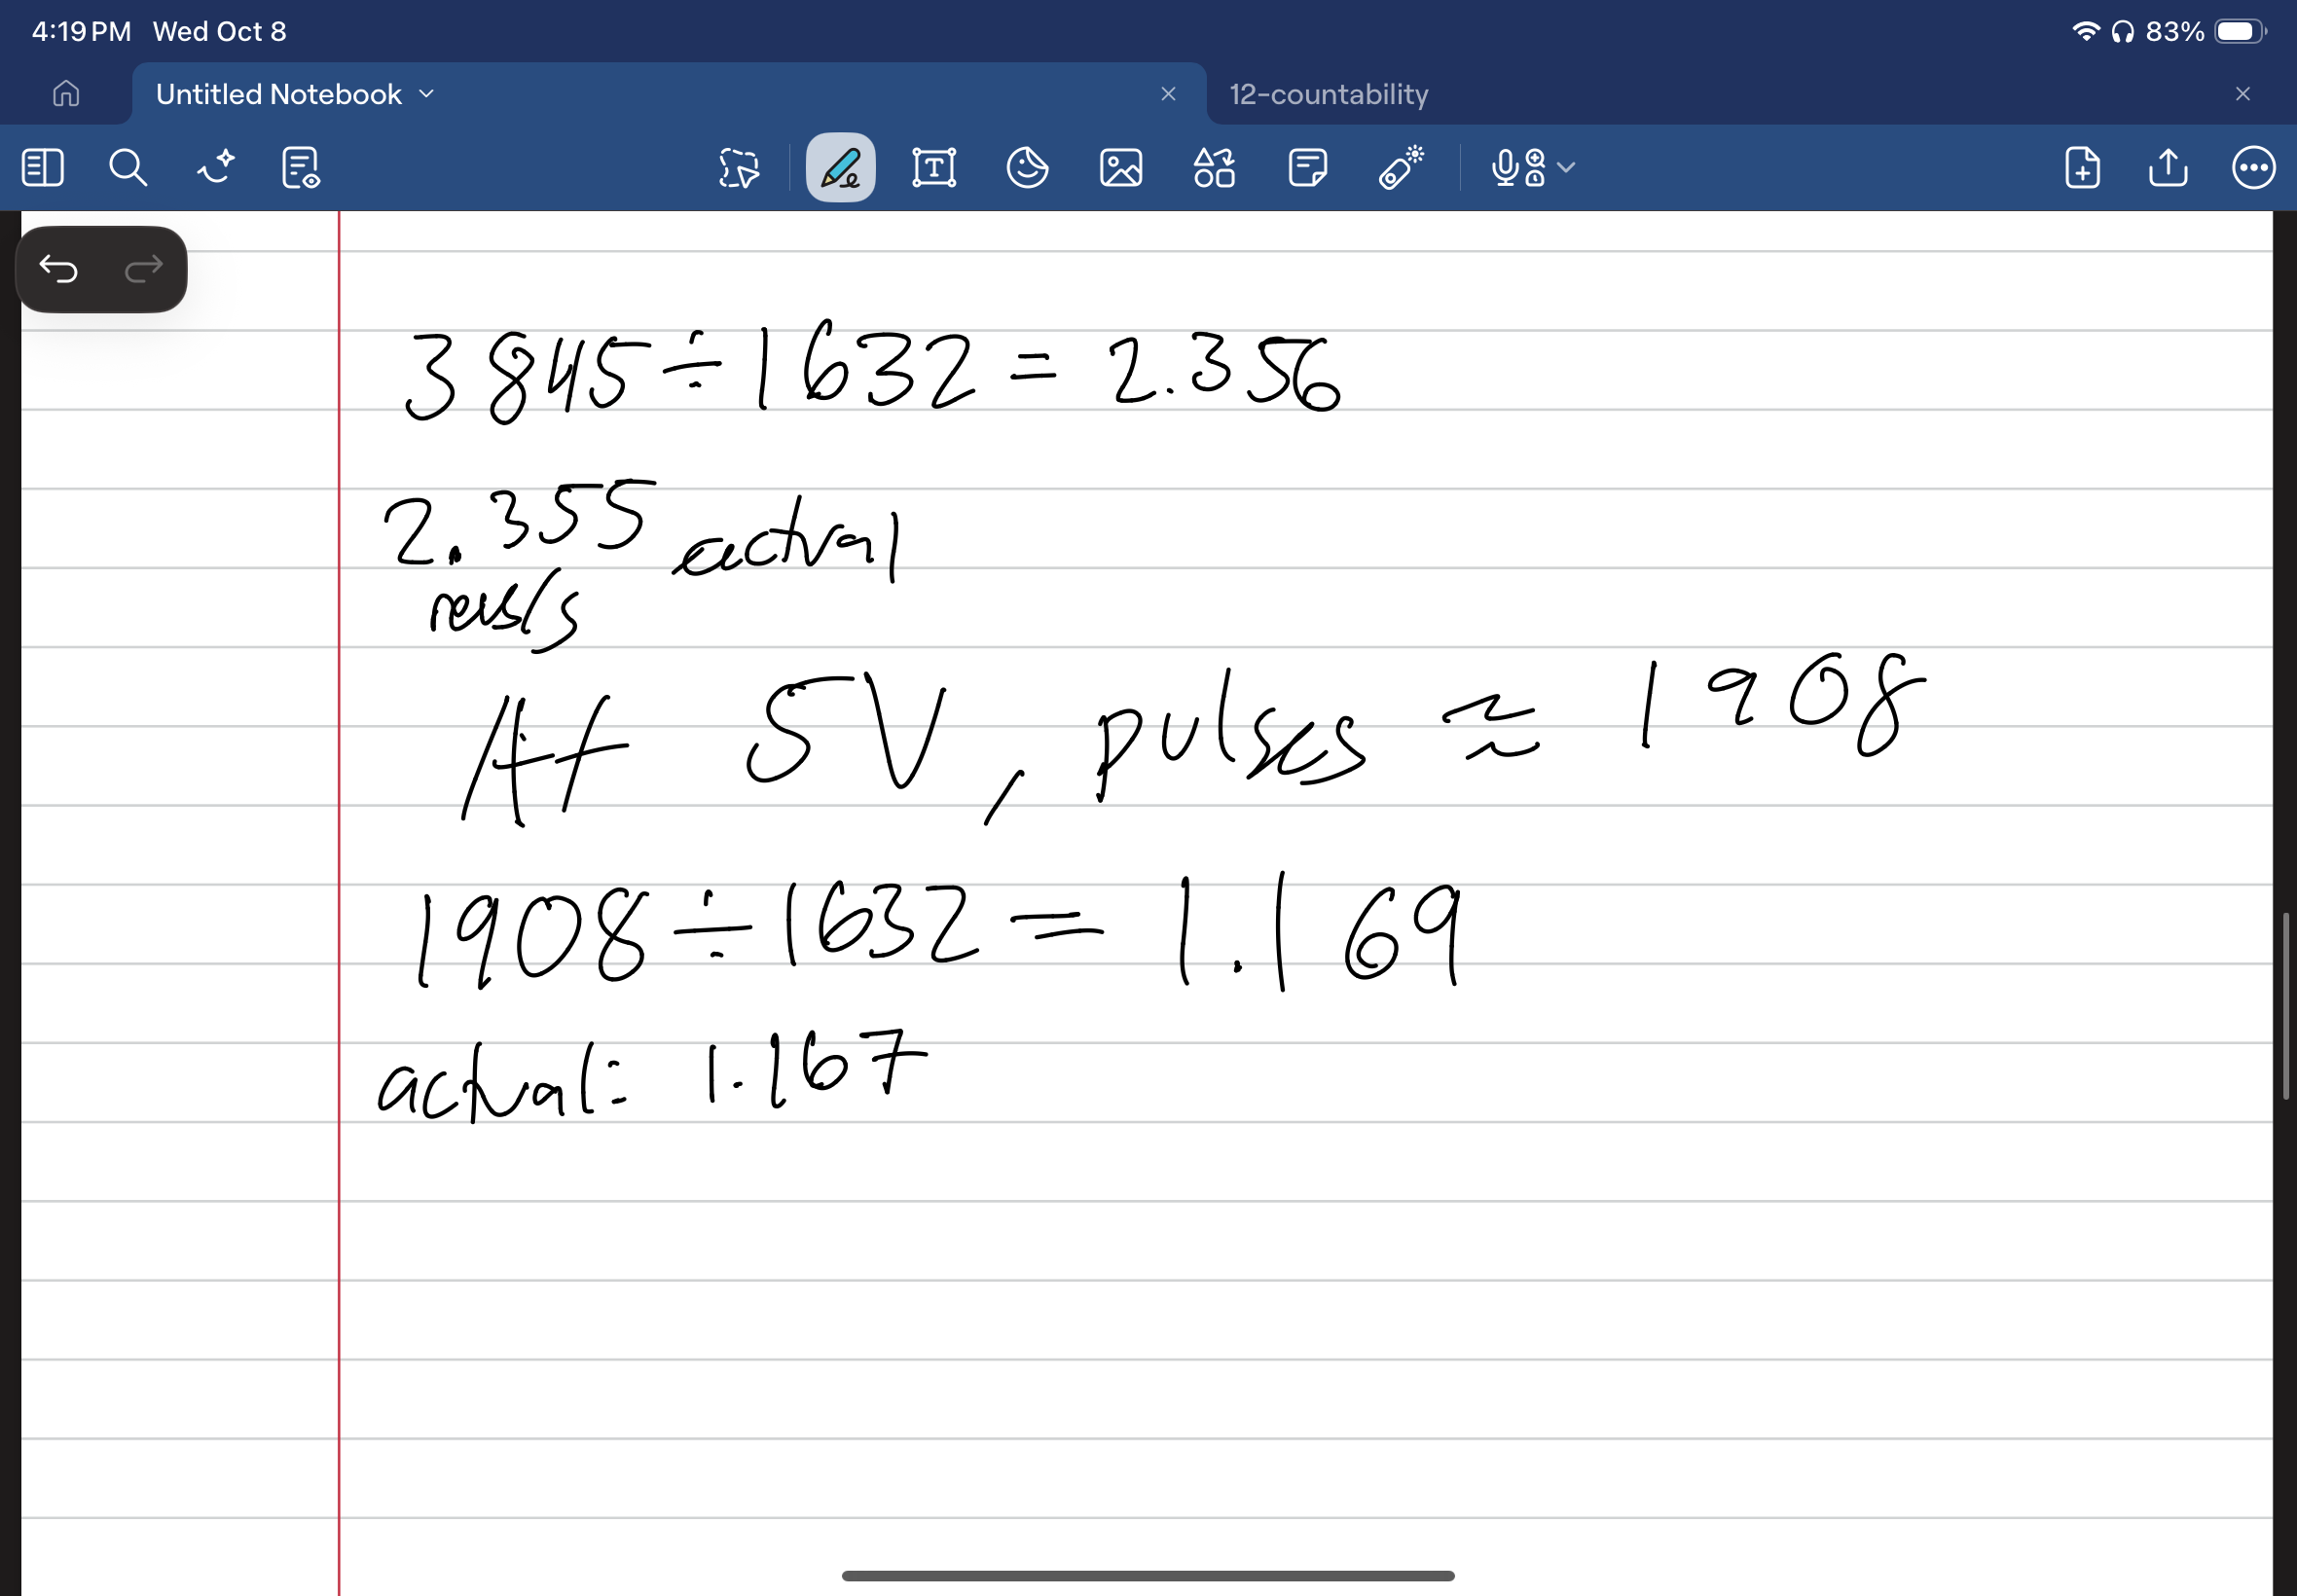 4:19 PM Wed Oct 8 83%
Untitled Notebook 12-countability
3845÷1632 = 2.356
2.355 actual
revs/s
At 5V, pulses ≈ 1908
1908÷1632 = 1.169
actual: 1.167